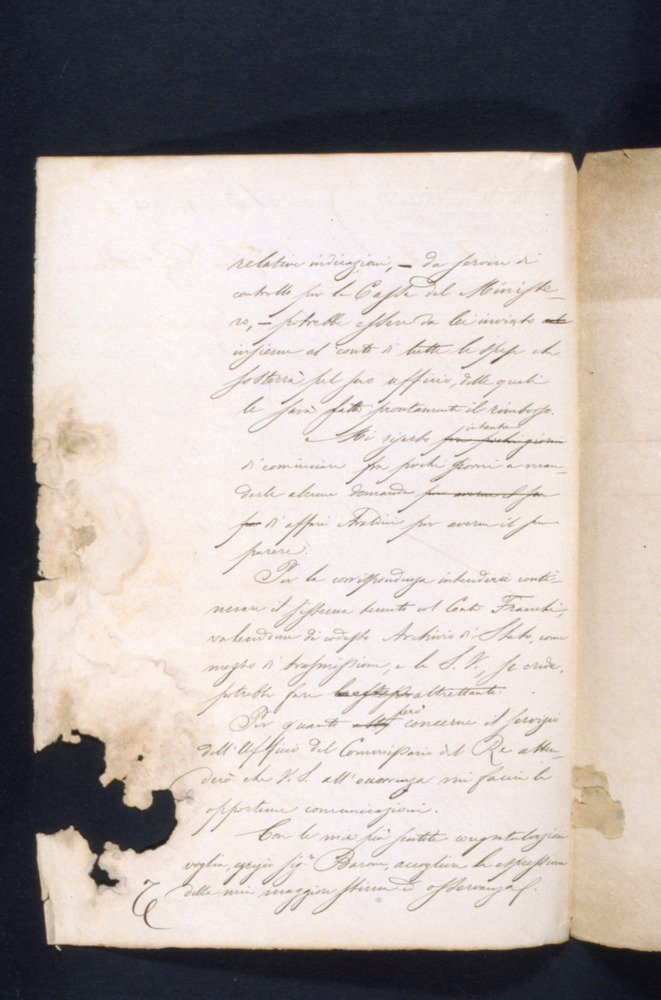 relative indicazioni, – da servire di
controllo per la Cassa del Ministe-
ro, – potrebbe essere da lei inviato
insieme al conto di tutte le spese che
sosterrà pel suo ufficio, delle quali
le sarà fatto prontamente il rimborso.
Mi riprometto intanto
di cominciare fra pochi giorni a man-
darle alcune domande
di affari Araldici per averne il suo
parere.
Per la corrispondenza intenderei conti-
nuare il sistema tenuto col Conte Franchi,
valendomi di codesto Archivio di Stato, come
mezzo di trasmissione, e la S. V., se crede,
potrebbe fare altrettanto.
Per quanto però concerne il servizio
dell'Ufficio del Commissario del Re atten-
derò che V. S. all'occorrenza mi faccia le
opportune comunicazioni.
Con le mie più sentite congratulazioni
voglia, egregio Sigr Barone, accogliere la espressione
della mia maggior stima ed osservanza.